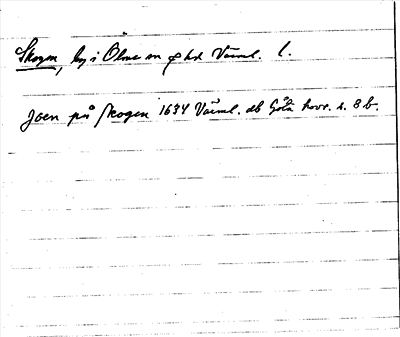 Skogen, by i Ölme sn o hd Värml. l.
Joen på Skogen 1634 Värml. db Göta hovr. s. 8 b.